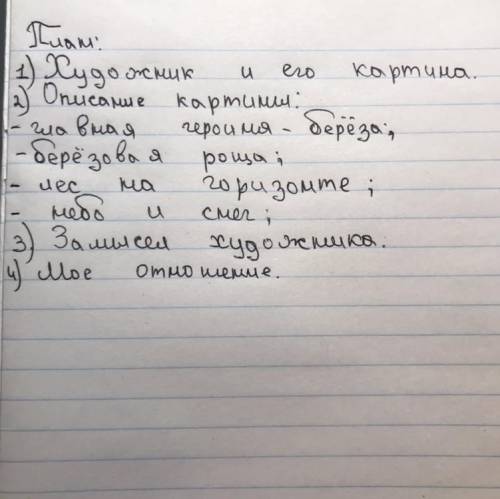 План:
1) Художник и его картина.
2) Описание картины:
- главная героиня - берёза;
- берёзовая роща;
- лес на горизонте;
- небо и снег;
3) Замысел художника.
4) Мое отношение.